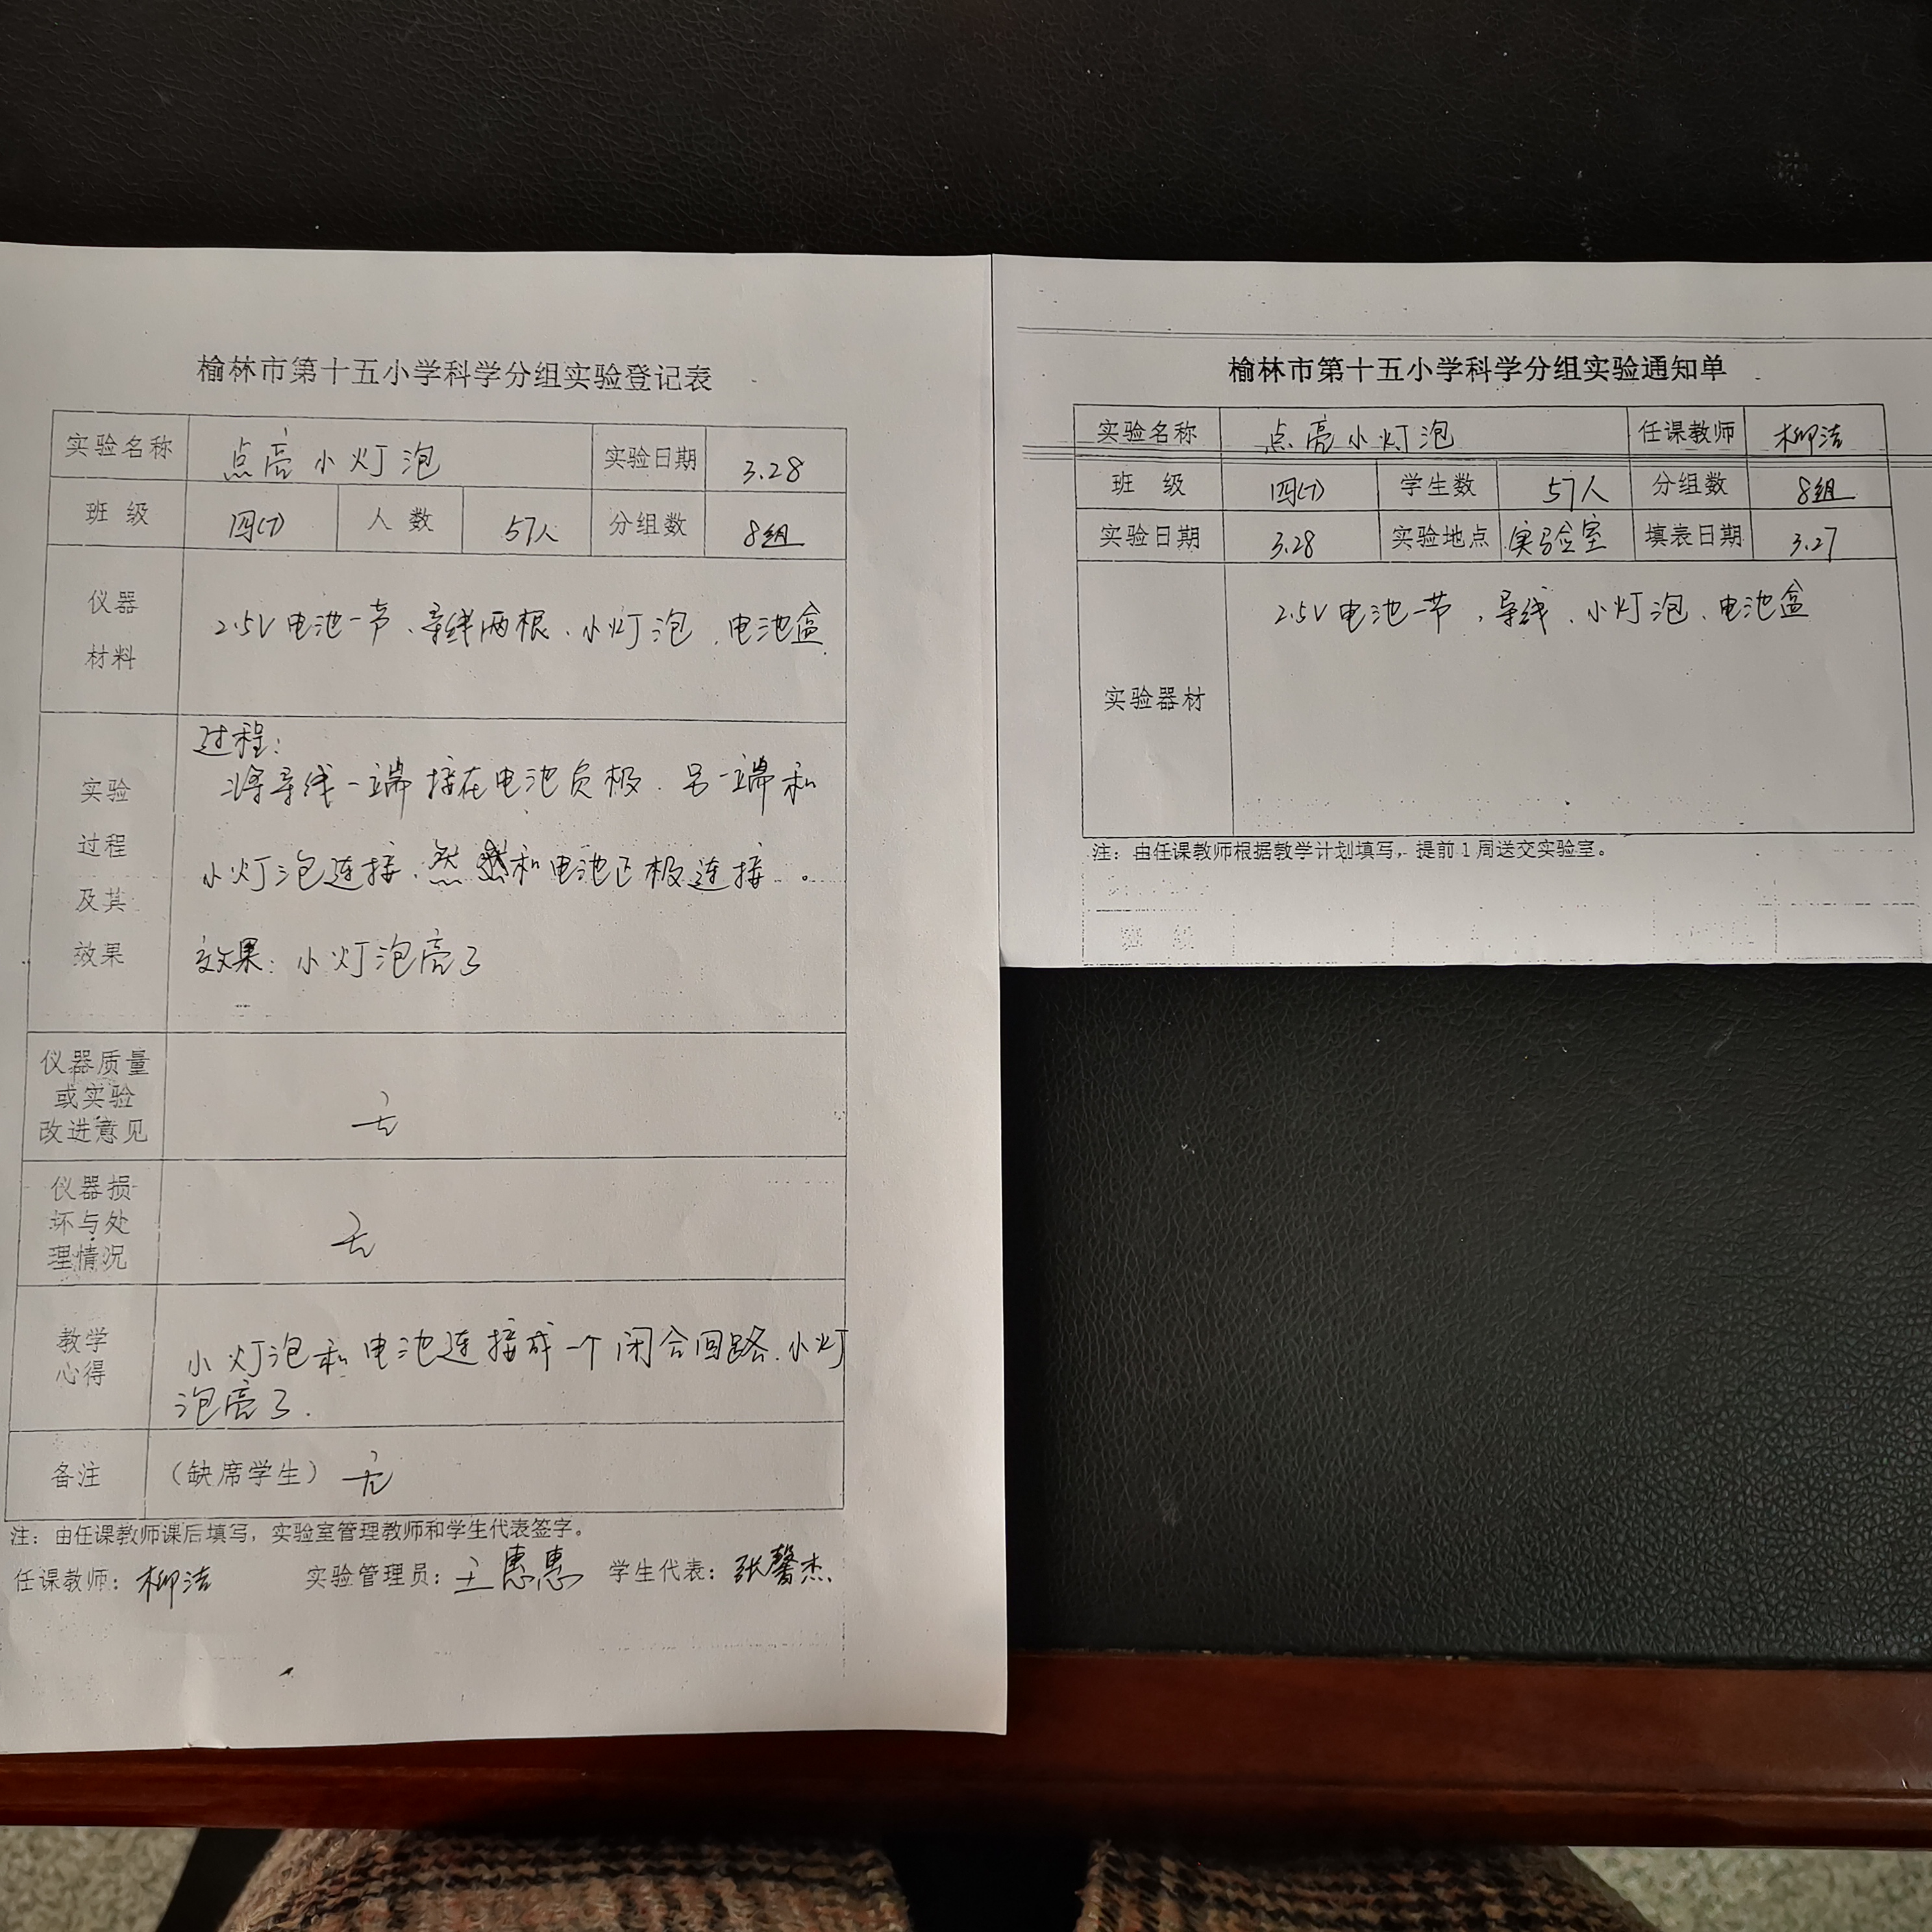 榆林市第十五小学科学分组实验登记表
实验名称 点亮小灯泡 实验日期 3.28
班 级 四(7) 人 数 57人 分组数 8组
仪器
材料
2.5V电池一节、导线两根、小灯泡、电池盒
实验
过程
及其
效果
过程:
将导线一端接在电池负极.另一端和
小灯泡连接、然 和电池正极连接。
效果:小灯泡亮了
仪器质量
或实验
改进意见
无
仪器损
坏与处
理情况
无
教学
心得
小灯泡和电池连接成一个闭合回路.小灯
泡亮了.
备注 (缺席学生) 无
注:由任课教师课后填写,实验室管理教师和学生代表签字。
任课教师:柳洁 实验管理员:王惠惠 学生代表:张馨杰
榆林市第十五小学科学分组实验通知单
实验名称 点亮小灯泡 任课教师 柳洁
班 级 四(7) 学生数 57人 分组数 8组
实验日期 3.28 实验地点 实验室 填表日期 3.27
实验器材
2.5V电池一节、导线、小灯泡、电池盒
注:由任课教师根据教学计划填写,提前1周送交实验室。
班 级